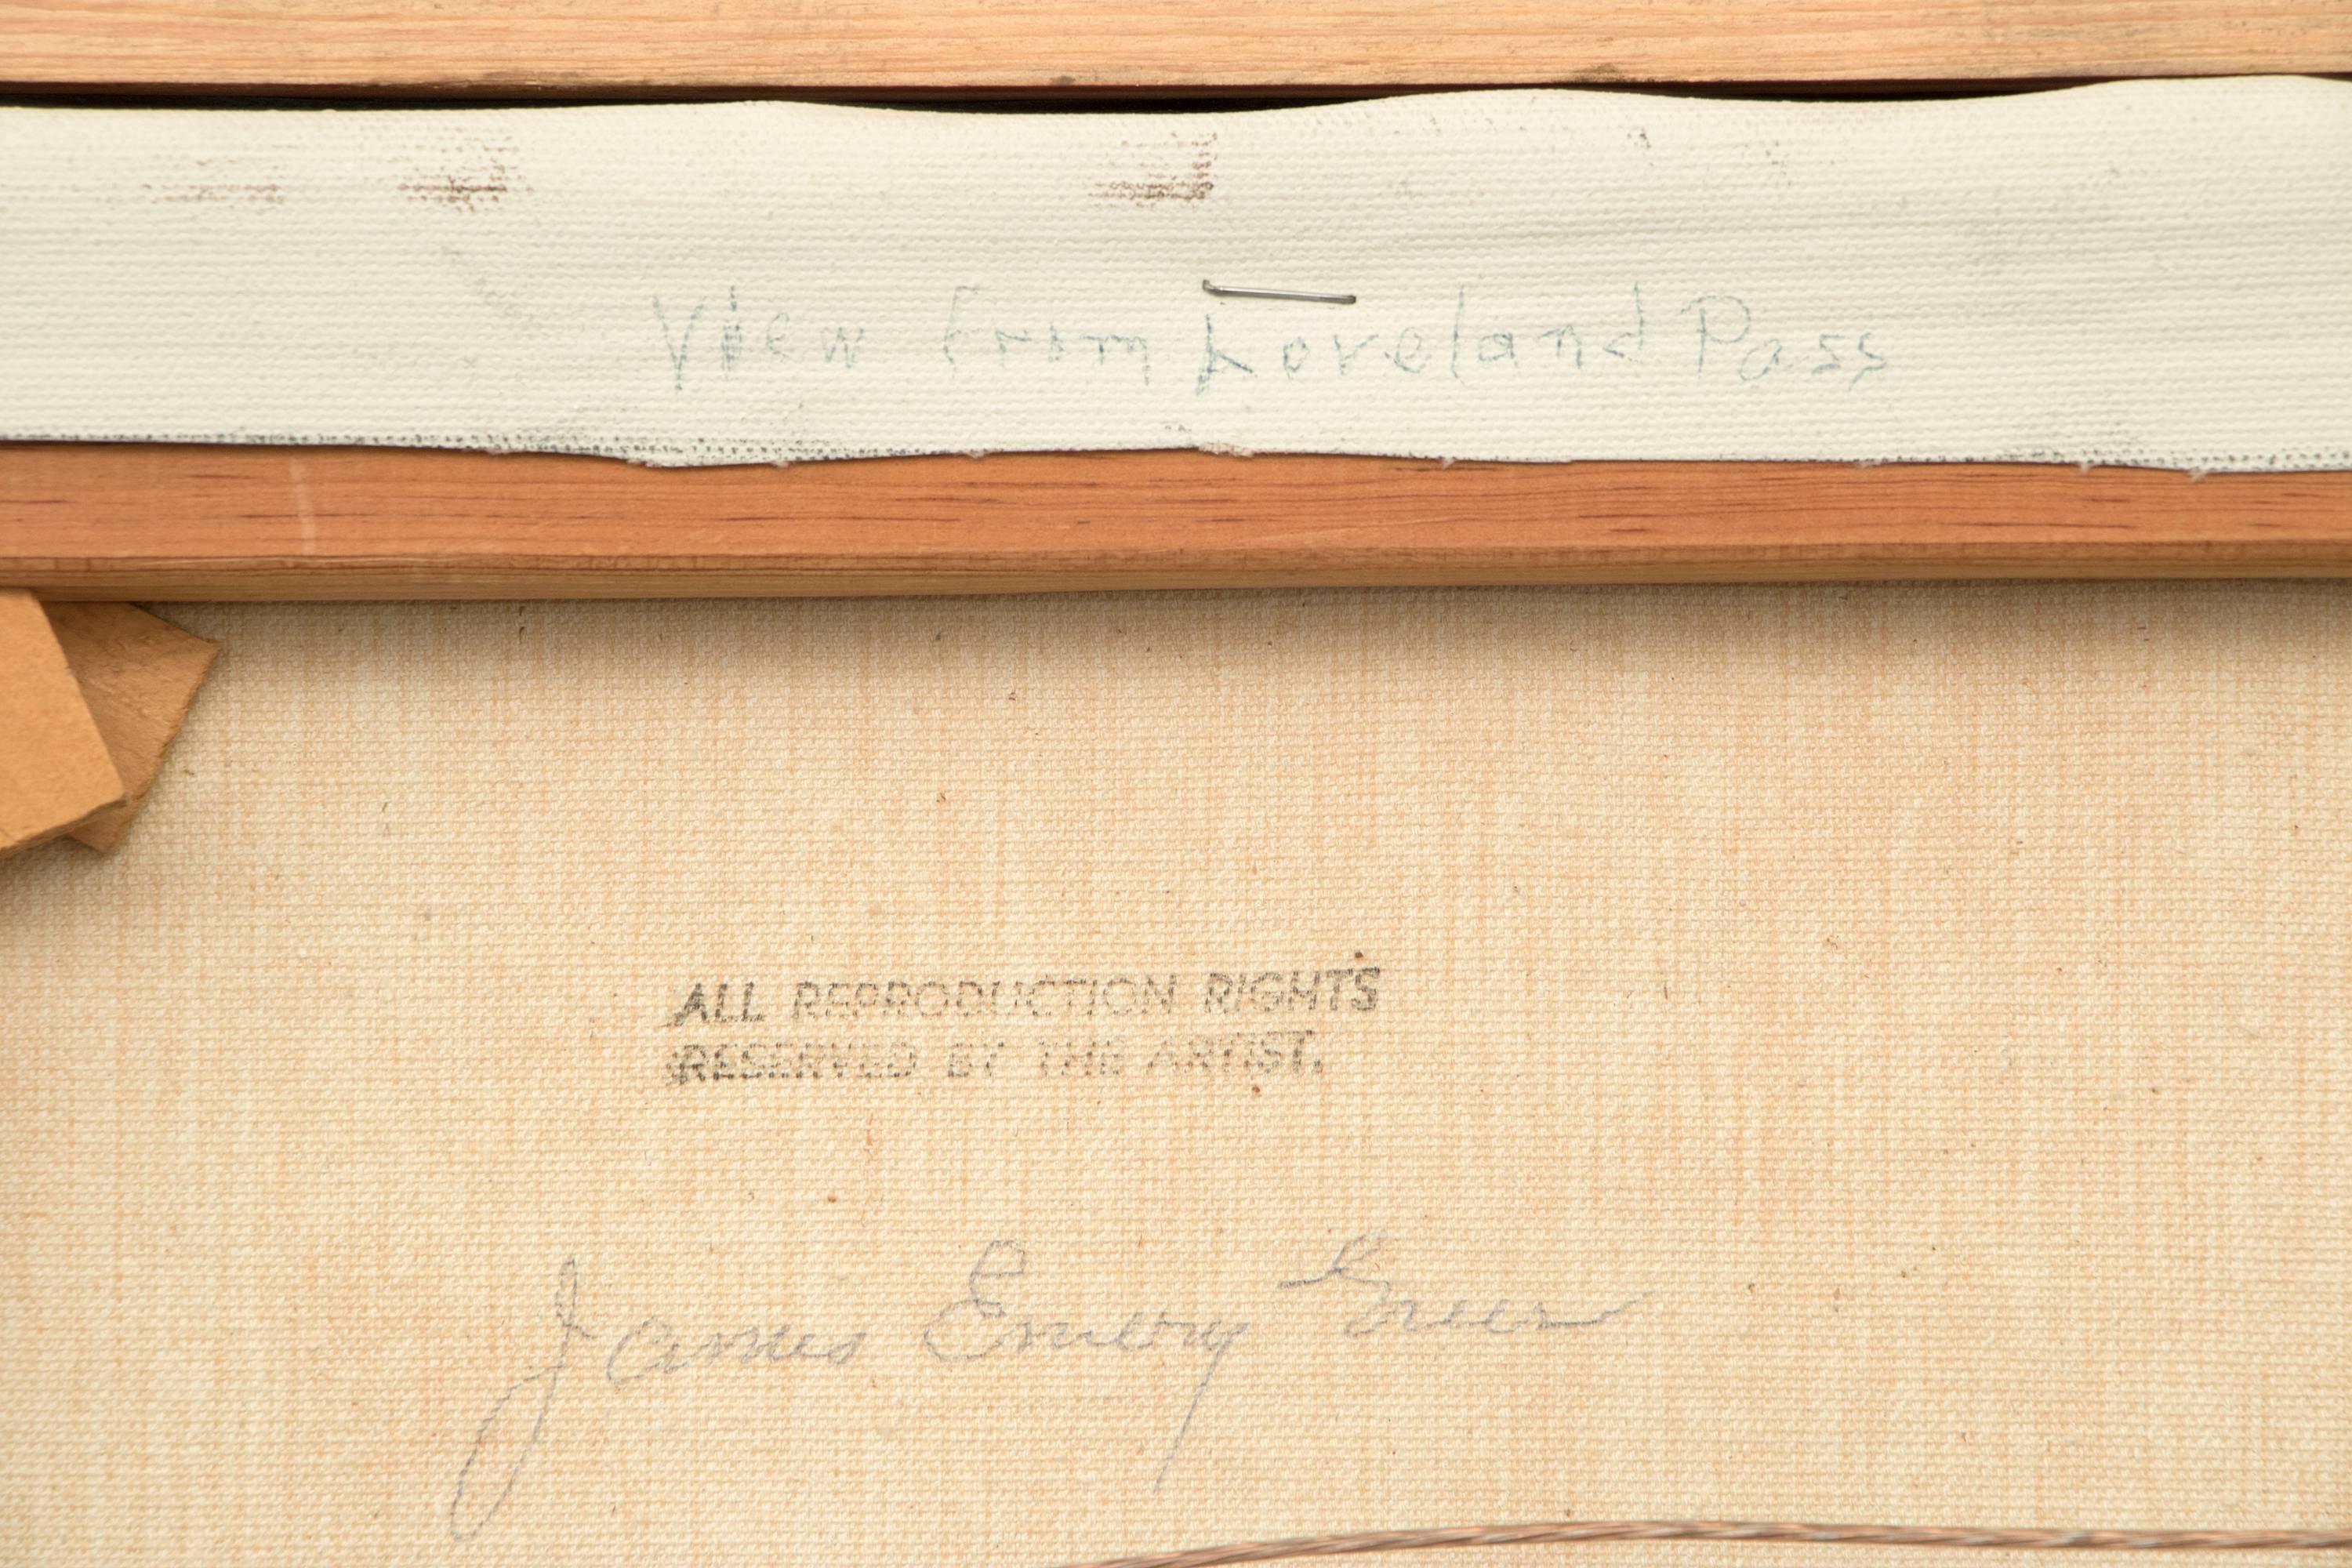 View From Loveland Pass
ALL REPRODUCTION RIGHTS
RESERVED BY THE ARTIST.
James Emery Greer